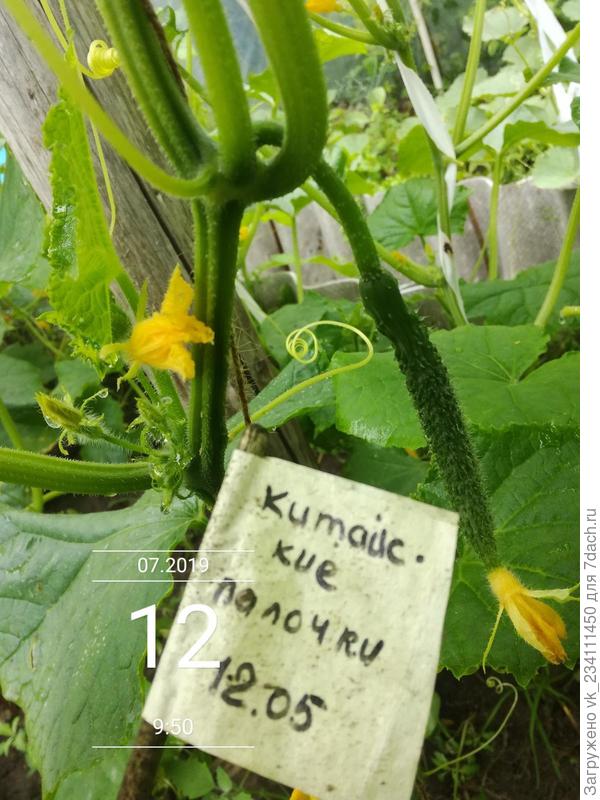 китайс.
кие
палочки
12.05
07.2019
12
9:50
Загружено vk_234111450 для 7dach.ru